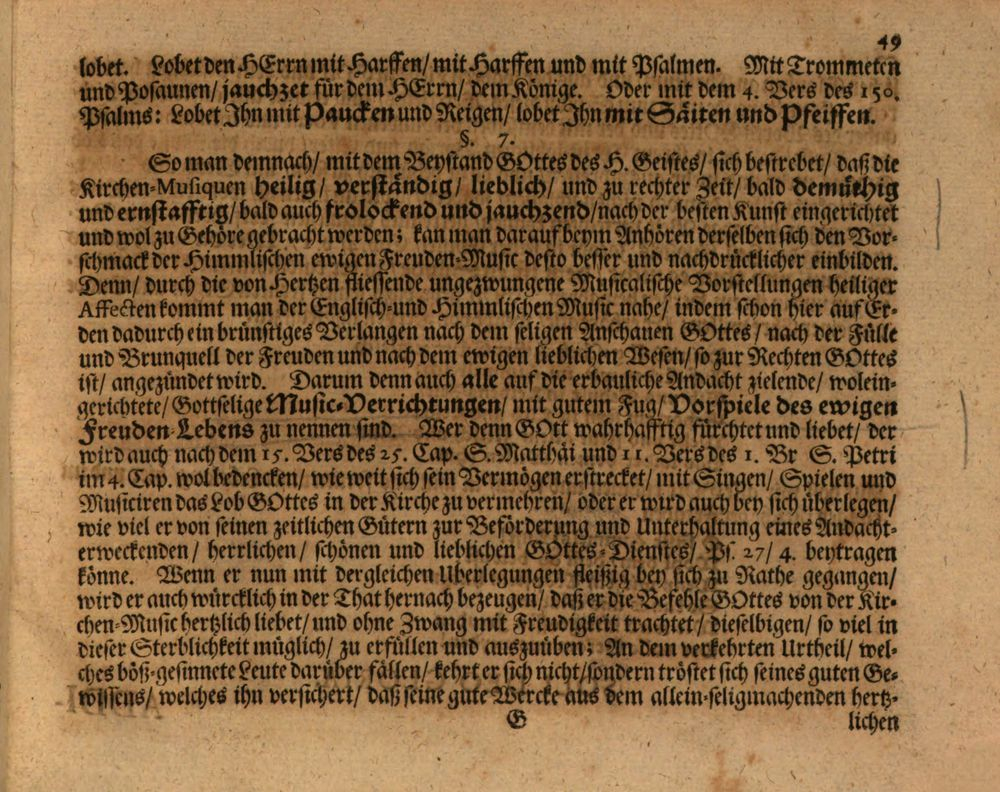 49
lobet. Lobet den HErrn mit Harffen/ mit Harffen und mit Psalmen. Mit Trommeten
und Posaunen/ jauchzet für dem HErrn/ dem Könige. Oder mit dem 4. Vers des 150.
Psalms: Lobet Ihn mit Paucken und Reigen/ lobet Ihn mit Säiten und Pfeiffen.
§. 7.
So man demnach/ mit dem Beystand GOttes des H. Geistes/ sich bestrebet/ daß die
Kirchen-Musiquen heilig/ verständig/ lieblich/ und zu rechter Zeit/ bald demüthig
und ernstafftig/ bald auch frolockend und jauchzend/ nach der besten Kunst eingerichtet
und wol zu Gehöre gebracht werden; kan man darauf beym Anhören derselben sich den Vor-
schmack der Himmlischen ewigen Freuden-Music desto besser und nachdrücklicher einbilden.
Denn/ durch die von Hertzen fliessende ungezwungene Musicalische Vorstellungen heiliger
Affecten kommt man der Englisch-und Himmlischen Music nahe/ indem schon hier auf Er-
den dadurch ein brünstiges Verlangen nach dem seligen Anschauen GOttes/ nach der Fülle
und Brunquell der Freuden und nach dem ewigen lieblichen Wesen/ so zur Rechten GOttes
ist/ angezündet wird. Darum denn auch alle auf die erbauliche Andacht zielende/ wolein-
gerichtete/ Gottselige Music-Verrichtungen/ mit gutem Fug/ Vorspiele des ewigen
Freuden-Lebens zu nennen sind. Wer denn GOtt wahrhafftig fürchtet und liebet/ der
wird auch nach dem 15. Vers des 25. Cap. S. Matthäi und 11. Vers des 1. Br S. Petri
im 4. Cap. wol bedencken/ wie weit sich sein Vermögen erstrecket/ mit Singen/ Spielen und
Musiciren das Lob GOttes in der Kirche zu vermehren/ oder er wird auch bey sich überlegen/
wie viel er von seinen zeitlichen Gütern zur Beförderung und Unterhaltung eines Andacht-
erweckenden/ herrlichen/ schönen und lieblichen GOttes-Dienstes/ Ps. 27/ 4. beytragen
könne. Wenn er nun mit dergleichen Uberlegungen fleißig bey sich zu Rathe gegangen/
wird er auch würcklich in der That hernach bezeugen/ daß er die Befehle GOttes von der Kir-
chen-Music hertzlich liebet/ und ohne Zwang mit Freudigkeit trachtet/ dieselbigen/ so viel in
dieser Sterblichkeit müglich/ zu erfüllen und auszuüben; An dem verkehrten Urtheil/ wel-
ches böß-gesinnete Leute darüber fällen/ kehrt er sich nicht/ sondern tröstet sich seines guten Ge-
wissens/ welches ihn versichert/ daß seine gute Wercke aus dem allein-seligmachenden hertz-
G lichen